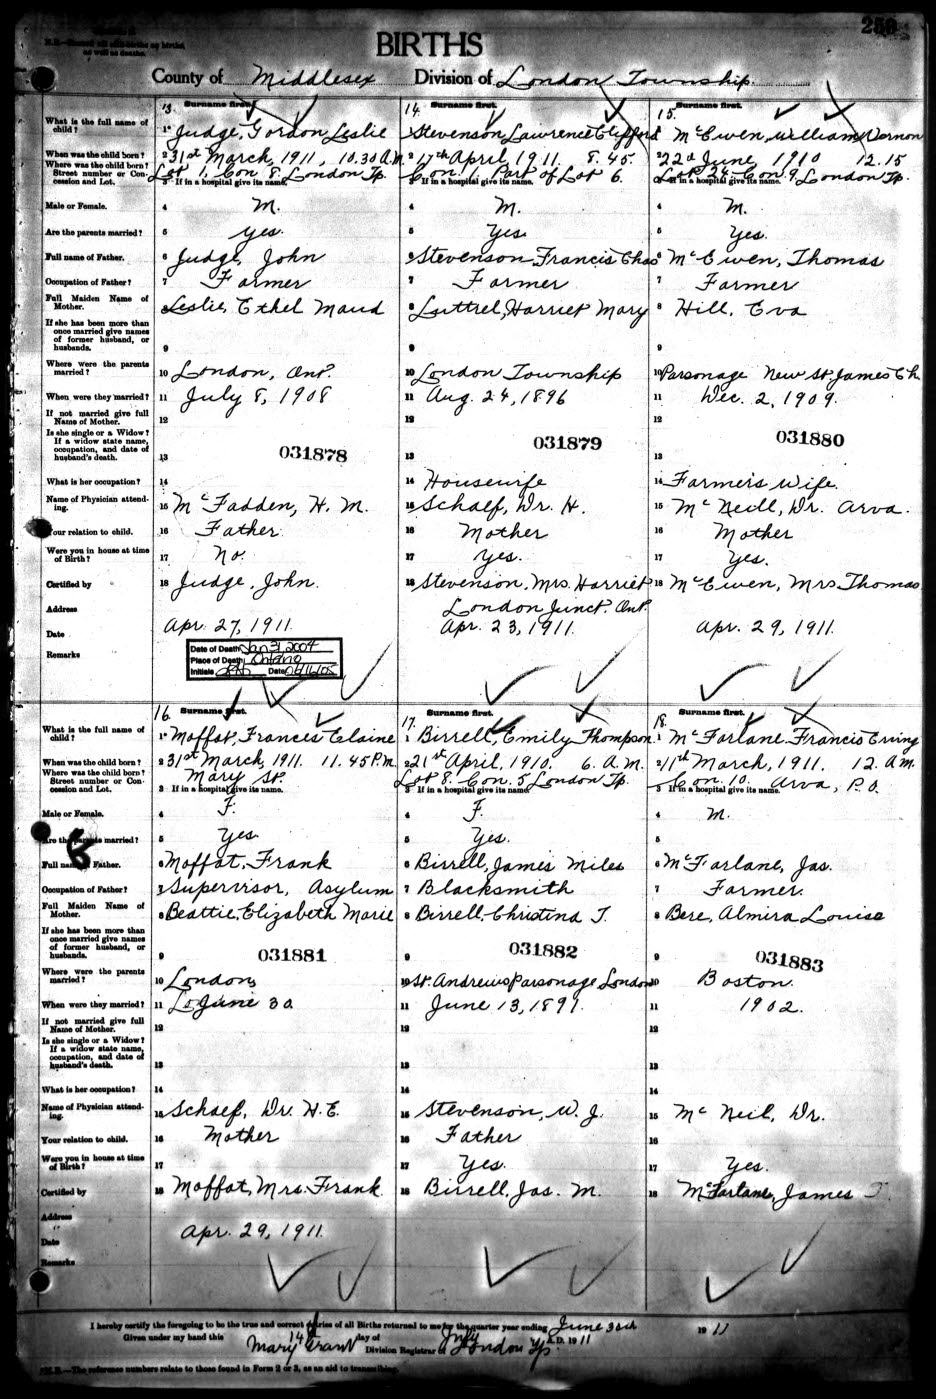 250
N.B.—
as well as deaths.
BIRTHS
County of Middlesex Division of London Township
13. Surname first. 14. Surname first. 15. Surname first.
What is the full name of child? 1 Judge, Gordon Leslie 1 Stevenson, Lawrence Clifford 1 McEwen, William Vernon
When was the child born? 2 31st March, 1911, 10.30 A.M. 2 17th April, 1911. 8.45. 2 22d June, 1910 12.15
Where was the child born? Street number or Concession and Lot. Lot 1, Con 8. London Tp. Con. 1. Part of Lot 6. Lot 24 Con. 9, London Tp.
3 If in a hospital give its name. 3 If in a hospital give its name. 3 If in a hospital give its name.
Male or Female. 4 M. 4 M. 4 M.
Are the parents married? 5 Yes. 5 Yes 5 Yes.
Full name of Father. 6 Judge, John 6 Stevenson, Francis Chas 6 McEwen, Thomas
Occupation of Father? 7 Farmer 7 Farmer 7 Farmer
Full Maiden Name of Mother. 8 Leslie, Ethel Maud 8 Luttrel, Harriet Mary 8 Hill, Eva
If she has been more than once married give names of former husband, or husbands. 9 9 9
Where were the parents married? 10 London, Ont. 10 London Township 10 Parsonage New St. James Ch.
When were they married? 11 July 8, 1908 11 Aug. 24, 1896 11 Dec. 2, 1909.
If not married give full Name of Mother. 12 12 12
Is she single or a Widow? If a widow state name, occupation, and date of husband's death. 13 031878 13 031879 13 031880
What is her occupation? 14 14 Housewife 14 Farmer's Wife.
Name of Physician attending. 15 McFadden, H. M. 15 Schaef, Dr. H. 15 McNeill, Dr. Arva.
Your relation to child. 16 Father. 16 Mother 16 Mother
Were you in house at time of Birth? 17 No. 17 Yes. 17 Yes.
Certified by 18 Judge, John. 18 Stevenson, Mrs. Harriet 18 McEwen, Mrs. Thomas
Address London Junct. Ont.
Date Apr. 27, 1911. Apr. 23, 1911. Apr. 29, 1911.
Remarks
Date of Death Jan 31, 2004
Place of Death Ontario
Initials Date 06/16/05
16. Surname first. 17. Surname first. 18. Surname first.
What is the full name of child? 1 Moffat, Frances Elaine 1 Birrell, Emily Thompson 1 McFarlane, Francis Erving
When was the child born? 2 31st March, 1911. 11.45 P.M. 2 21st April, 1910. 6. A.M. 2 11th March, 1911. 12. A.M.
Where was the child born? Street number or Concession and Lot. Mary St. Lot 8. Con. 5 London Tp. Con. 10. Arva, P.O.
3 If in a hospital give its name. 3 If in a hospital give its name. 3 If in a hospital give its name.
Male or Female. 4 F. 4 F. 4 M.
Are the parents married? 5 Yes 5 Yes. 5
Full name of Father. 6 Moffat, Frank 6 Birrell, James Miles 6 McFarlane, Jas.
Occupation of Father? 7 Supervisor, Asylum 7 Blacksmith 7 Farmer.
Full Maiden Name of Mother. 8 Beattie, Elizabeth Marie 8 Birrell, Christina T. 8 Bere, Almira Louise
If she has been more than once married give names of former husband, or husbands. 9 031881 9 031882 9 031883
Where were the parents married? 10 London, 10 St. Andrews Parsonage London 10 Boston.
When were they married? 11 June 30 11 June 13, 1891. 11 1902.
If not married give full Name of Mother. 12 12 12
Is she single or a Widow? If a widow state name, occupation, and date of husband's death. 13 13 13
What is her occupation? 14 14 14
Name of Physician attending. 15 Schaef, Dr. H. E. 15 Stevenson, W. J. 15 McNeil, Dr.
Your relation to child. 16 Mother 16 Father 16
Were you in house at time of Birth? 17 17 Yes. 17 Yes.
Certified by 18 Moffat, Mrs. Frank. 18 Birrell, Jas. M. 18 McFarlane, James
Address
Date Apr. 29, 1911.
Remarks
I hereby certify the foregoing to be the true and correct entries of all Births returned to me for the quarter year ending June 30th 1911
Given under my hand this 14 day of July A.D. 1911
Mary Grant Division Registrar of London Tp.
N.B.—The reference numbers relate to those found in Form 2 or 3, as an aid to transcribing.